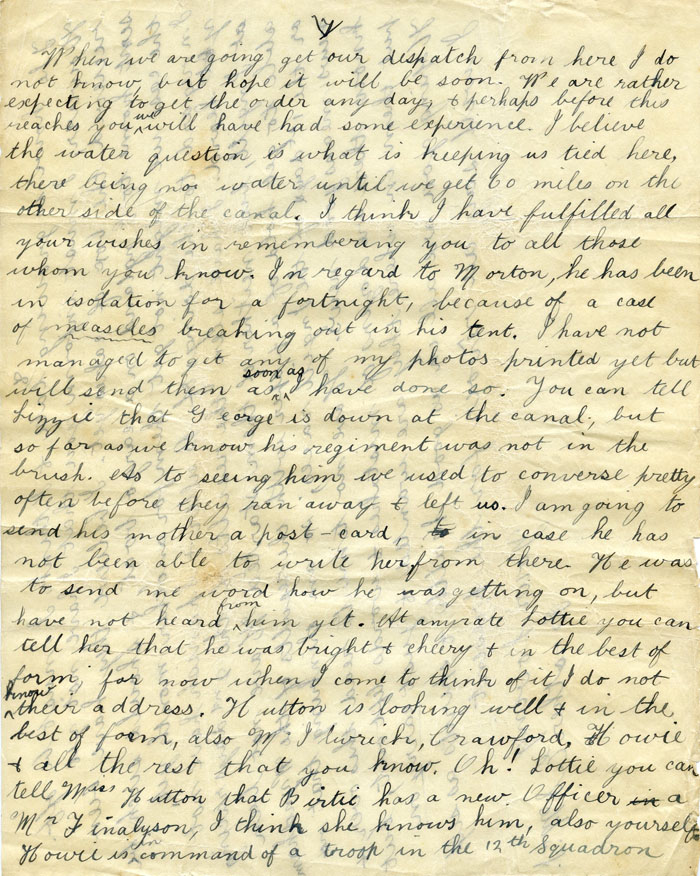 7
When we are going get our dispatch from here I do
not know, but hope it will be soon. We are rather
expecting to get the order any day, & perhaps before this
reaches you we will have had some experience. I believe
the water question is what is keeping us tied here,
there being no water until we get 60 miles on the
other side of the canal. I think I have fulfilled all
your wishes in remembering you to all those
whom you know. In regard to Morton, he has been
in isolation for a fortnight, because of a case
of measeles breaking out in his tent. I have not
managed to get any of my photos printed yet but
will send them as soon as I have done so. You can tell
Lizzie that George is down at the canal, but
so far as we know his regiment was not in the
brush. As to seeing him we used to converse pretty
often before they ran away & left us. I am going to
send his mother a post-card, in case he has
not been able to write her from there. He was
to send me word how he was getting on, but
have not heard from him yet. At anyrate Lottie you can
tell her that he was bright & cheery & in the best of
form, for now when I come to think of it I do not
know their address. Hutton is looking well & in the
best of form, also Crawford, Howie
& all the rest that you know. Oh! Lottie you can
tell Miss Hutton that Birtie has a new Officer in a
Mr Finalyson, I think she knows him, also yourself
Howie is in command of a troop in the 12th Squadron